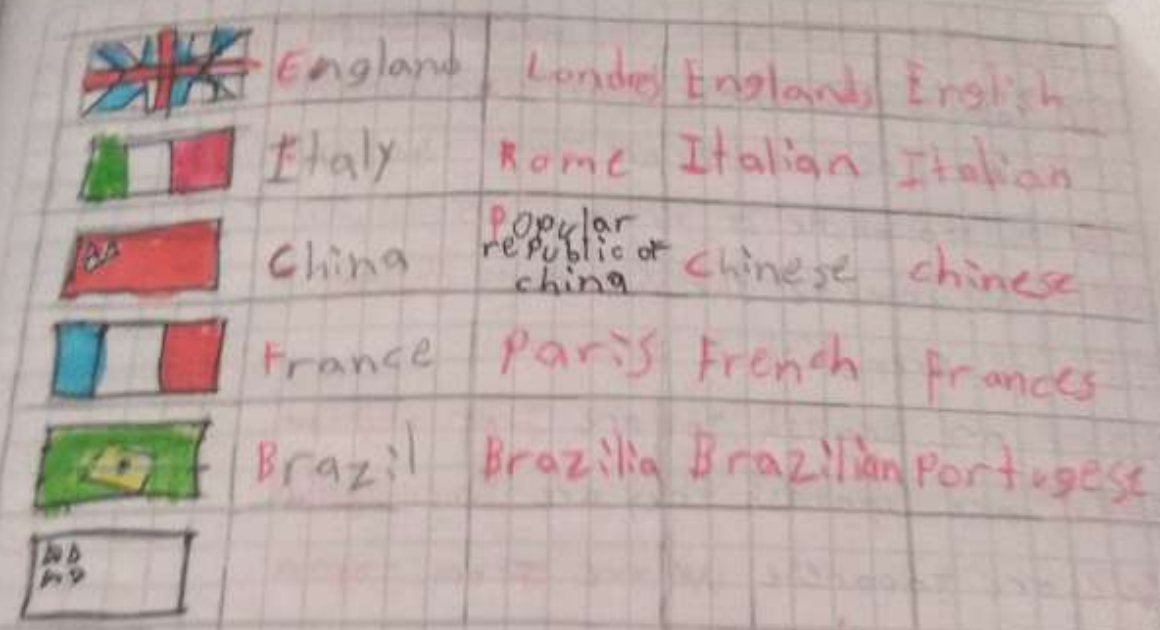 England Londres Englands English
Italy Rome Italian Italian
China Popular republic of china Chinese chinese
France Paris French Frances
Brazil Brazilia Brazilian Portugese